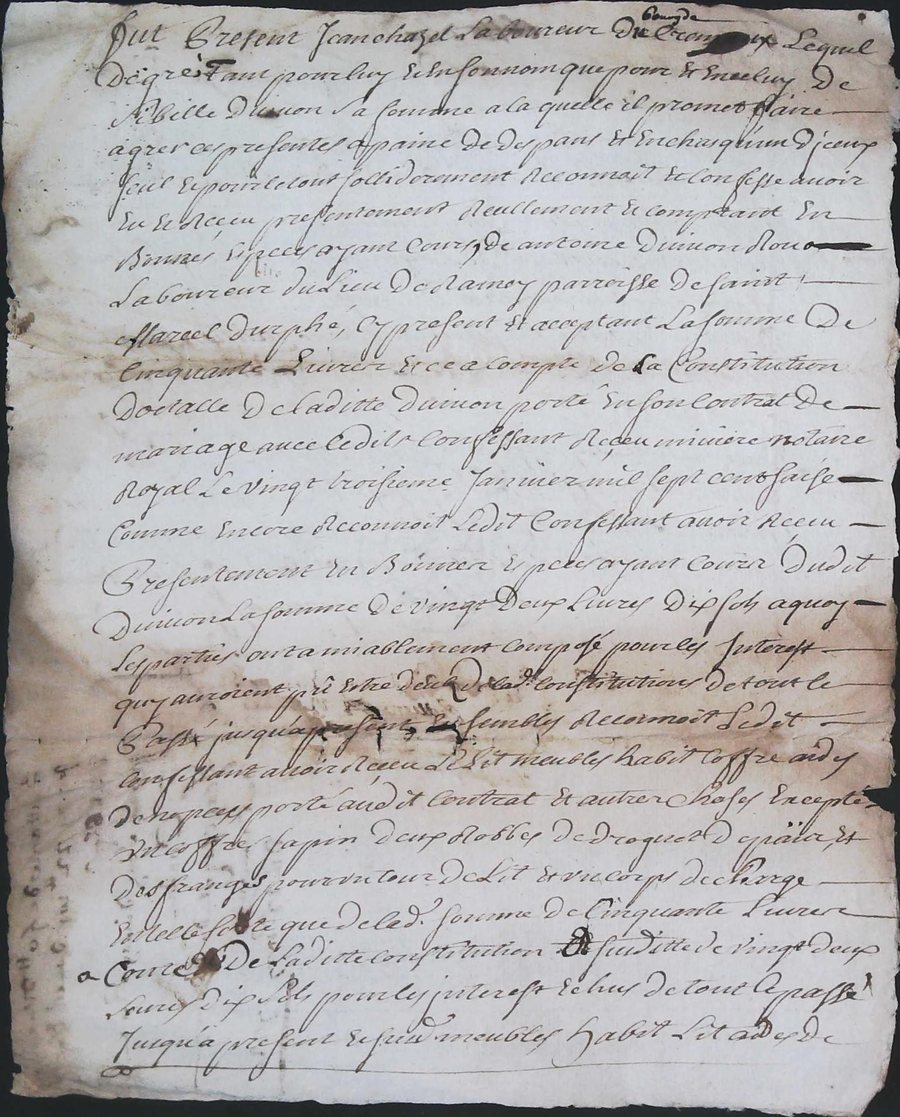 fut Present Jean chazel Laboureur du bourg de Lequel
De gré Tant pour luy et En son nom que pour et En celuy De
Sibille Duivon sa femme a la quelle il promet faire
agreer ces presentes a paine De Despans et En chasqu'un D'jceux
seul et pour le tout sollidairement Reconnoît et Confesse avoir
Eu et Receu presentement Reellement et comptant En
Bonnes Especes ayant Cours, de antoine Duivon
Laboureur du Lieu De Ramey parroisse De saint
Marcel Durphé, Cy present et acceptant La somme De
Cinquante Livres et ce a compte de La Constitution
Dottalle De laditte Duivon porté En son Contrat De
mariage avec Ledit Confessant Receu notaire
Royal Le vingt troisieme Janvier mil sept cent saise
Comme Encore Reconnoit Ledit Confessant avoir Receu
Presentement En Bonnes Especes ayant Cours Dudit
Duivon La somme De vingt Deux Livres Dix sols a quoy
Les parties ont amiablement composé pour les Interest
quy auroient pû Estre deub De lad. Constitutions De tout le
Passé jusqu'a present, Reconnoit Ledit
Confessant avoir Receu Le Lit meubles habit Coffre aides
De nopces porté audit Contrat et autres Choses Excepté
Un Coffre sapin Deux Robbes De Droguet et
Des franges pour un tour De Lit et un corps De charge
En telle sorte que De lad. somme De Cinquante Livres
De Laditte Constitution susditte De vingt Deux
Livres Dix sols pour les jnterest Echus De tout le passé
Jusqu'a present et susd. meubles habit Lit aides De